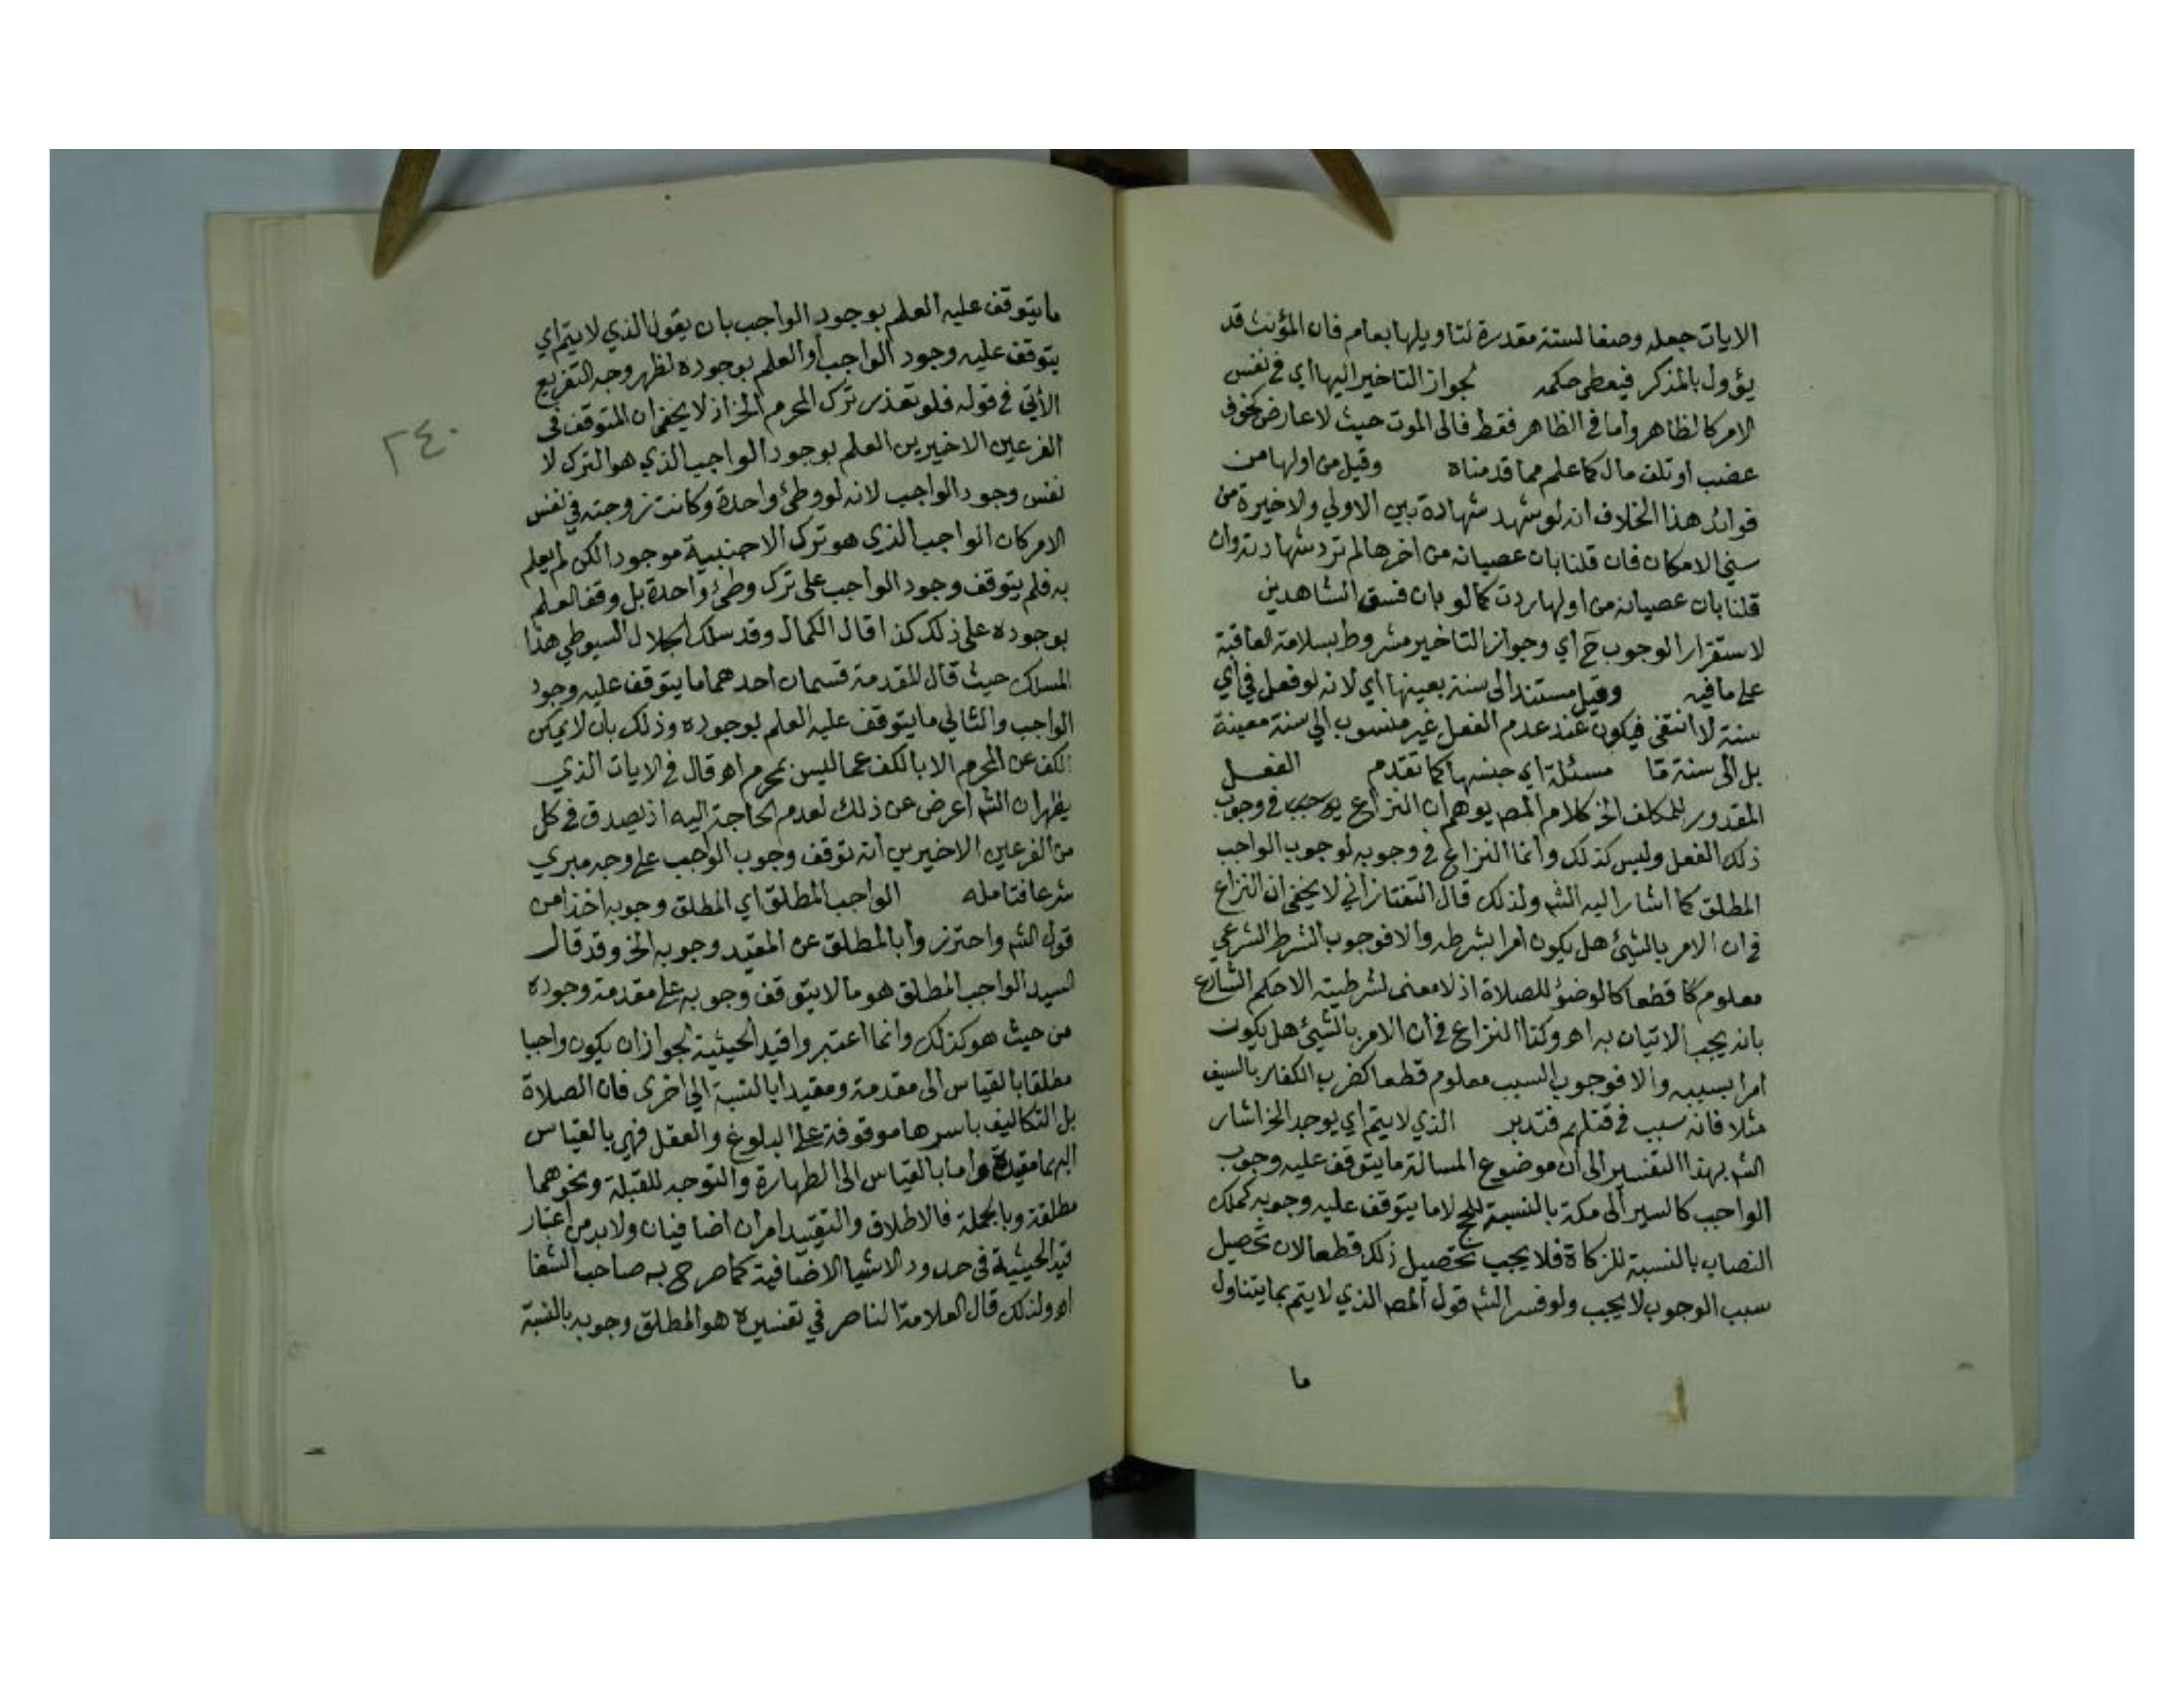 الايات جعله وصفا لسنة مقدرة لتاويلها بعام فان المؤنث قد
يؤول بالمذكر فيعطى حكمه لجواز التاخير اليها اي في نفس
الامر كالظاهر واما في الظاهر فقط فالى الموت حيث لا عارض كخوف
عضب او تلف مال كما علم مما قدمناه وقيل من اولها من
فوائد هذا الخلاف انه لو شهد شهادة بين الاولي والاخيرة من
سني الامكان فان قلنا بان عصيانه من اخرها لم ترد شهادته وان
قلنا بان عصيانه من اولها ردت كما لو بان فسق الشاهدين
لاستقرار الوجوب ح اي وجواز التاخير مشروط بسلامة العاقبة
على ما فيه وقيل مستندا الى سنة بعينها اي لانه لو فعل في اي
سنة لا انتفى فيكون عند عدم الفعل غير منسوب الي سنة معينة
بل الى سنة ما مسئلة اي جنسها كما تقدم الفعل
المقدور للمكلف الخ كلام المص يوهم ان النزاع في وجوب
ذلك الفعل وليس كذلك وانما النزاع في وجوبه لوجوب الواجب
المطلق كما اشار اليه الش ولذلك قال التفتازاني لا يخفى ان النزاع
في ان الامر بالشيئ هل يكون امرا بشرطه والا فوجوب الشرط الشرعي
معلوم قطعا كالوضؤ للصلاة اذ لا معنى لشرطيته الا حكم الشارع
بانه يجب الاتيان به اه وكذا النزاع في ان الامر بالشيئ هل يكون
امرا بسببه والا فوجوب السبب معلوم قطعا كضرب الكفار بالسيف
مثلا فانه سبب في قتلهم فتدبر الذي لا يتم اي يوجد الخ اشار
الش بهذا التفسير الى ان موضوع المسالة ما يتوقف عليه وجوب
الواجب كالسير الى مكة بالنسبة للحج لا ما يتوقف عليه وجوبه كملك
النصاب بالنسبة للزكاة فلا يجب تحصيل ذلك قطعا لان تحصيل
سبب الوجوب لا يجب ولو فسر الش قول المص الذي لا يتم بما يتناول
ما
ما يتوقف عليه العلم بوجود الواجب بان يقول الذي لا يتم اي
يتوقف عليه وجود الواجب أو العلم بوجوده لظهر وجه التفريع
الأتي في قوله فلو تعذر ترك المحرم الخ اذ لا يخفى ان المتوقف في
الفرعين الاخيرين العلم بوجود الواجب الذي هو الترك لا
نفس وجود الواجب لانه لو وطئ واحدة وكانت زوجته في نفس
الامر كان الواجب الذي هو ترك الاجنبية موجودا لكن لم يعلم
به فلم يتوقف وجود الواجب على ترك وطئ واحدة بل وقف العلم
بوجوده على ذلك كذا قال الكمال وقد سلك الجلال السيوطي هذا
المسلك حيث قال المقدمة قسمان احدهما ما يتوقف عليه وجود
الواجب والثاني ما يتوقف عليه العلم بوجوده وذلك بان لا يمكن
الكف عن المحرم الا بالكف عما ليس بمحرم اه قال في الايات الذي
يظهر ان الش اعرض عن ذلك لعدم الحاجة اليه اذ يصدق في كل
من الفرعين الاخيرين انه توقف وجوب الواجب على وجه مبري
شرعا فتامله الواجب المطلق اي المطلق وجوبه اخذا من
قول الش واحترزوا بالمطلق عن المقيد وجوبه الخ وقد قال
السيد الواجب المطلق هو ما لا يتوقف وجوبه على مقدمة وجوده
من حيث هو كذلك وانما اعتبروا قيد الحيثية لجواز ان يكون واجبا
مطلقا بالقياس الى مقدمة ومقيدا بالنسبة الي اخرى فان الصلاة
بل التكاليف باسرها موقوفة على البلوغ والعقل فهي بالقياس
اليهما مقيدة واما بالقياس الى الطهارة والتوجه للقبلة ونحوهما
مطلقة وبالجملة فالاطلاق والتقييد امران اضافيان ولا بد من اعتبار
قيد الحيثية في حدود الاشيا الاضافية كما صرح به صاحب الشفا
اه ولذلك قال العلامة الناصر في تفسيره هو المطلق وجوبه بالنسبة
٢٤٠